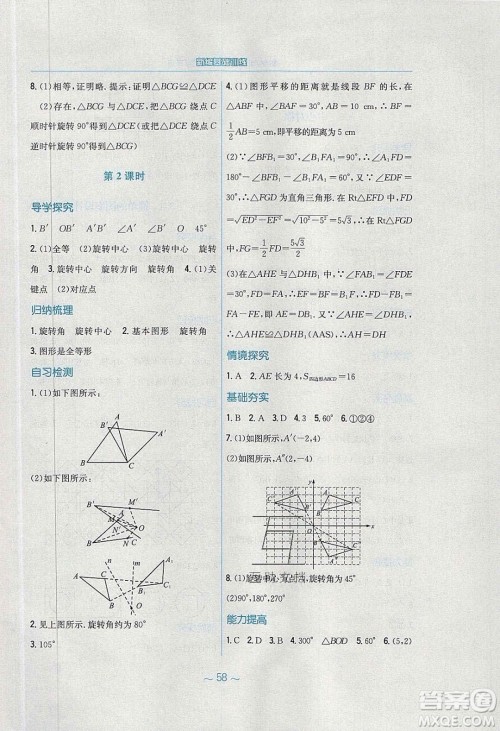 新编基础训练
8. (1)相等,证明略. 提示:证明△BCG≌△DCE
(2)存在, △BCG 与 △DCE, △BCG 绕点 C
顺时针旋转 90°得到△DCE(或△DCE 绕点 C
逆时针旋转 90°得到△BCG)
第 2 课时
导学探究
1. B′ OB′ A′B′ ∠A′ ∠B′ O 45°
2. (1)全等 (2)旋转中心 旋转中心 旋转
角 3. 旋转中心 旋转方向 旋转角 4. (1)关
键点 (2)对应点
归纳梳理
1. 旋转角 旋转中心 2. 基本图形 旋转角
3. 图形是全等形
自习检测
1. (1)如下图所示.
A
B′
A′
B
C
(2)如下图所示.
B′
M′
A′
M
O
N′
A
N
B
n
m
A
C
A₁
C₁
B
B₁
2. 见上图所示,旋转角约为 80°
3. 105°
4. (1)图形平移的距离就是线段 BF 的长, 又
1/2 AB=5 cm,即平移的距离为 5 cm
(2)∵∠BFB₁=30°, ∠B₁FA₁=90°, ∴∠FD=
180°-90°-30°=60°, 又∵∠B₁A₁F=30°,
∴△FGD 为直角三角形. ∵在 Rt△DFE 中,FD=
√ED²-EF²=√10²-5²=5√3, ∴在 Rt△FGD 中,
FG=1/2 FD=5√3/2
(3)在△AHE 与△DHB₁ 中, ∵∠A=∠HDB₁
=30°, ∵FD=FA, EF=FB₁, ∴FD-FB₁=
FA-EF, 即 AE=DB₁. 又∵∠AHE=∠DHB₁,
∴△AHE≌△DHB₁(AAS), ∴AH=DH
情境探究
1. A 2. AE 长为 4,S四边形ABCD=16
基础夯实
1. B 2. A 3. D 4. D 5. 60° 6. ①②④
7. (1)如图所示,A′(-2,4)
(2)如图所示.
y
x
8. (1)旋转中心为点 A,旋转角为 45°
(2)90°,180°,270°
能力提高
1. C 2. D 3. B 4. 300° △BOD 5. 60° 6. (5,2)
～ 58 ～
作业答案
www.mxqe.com